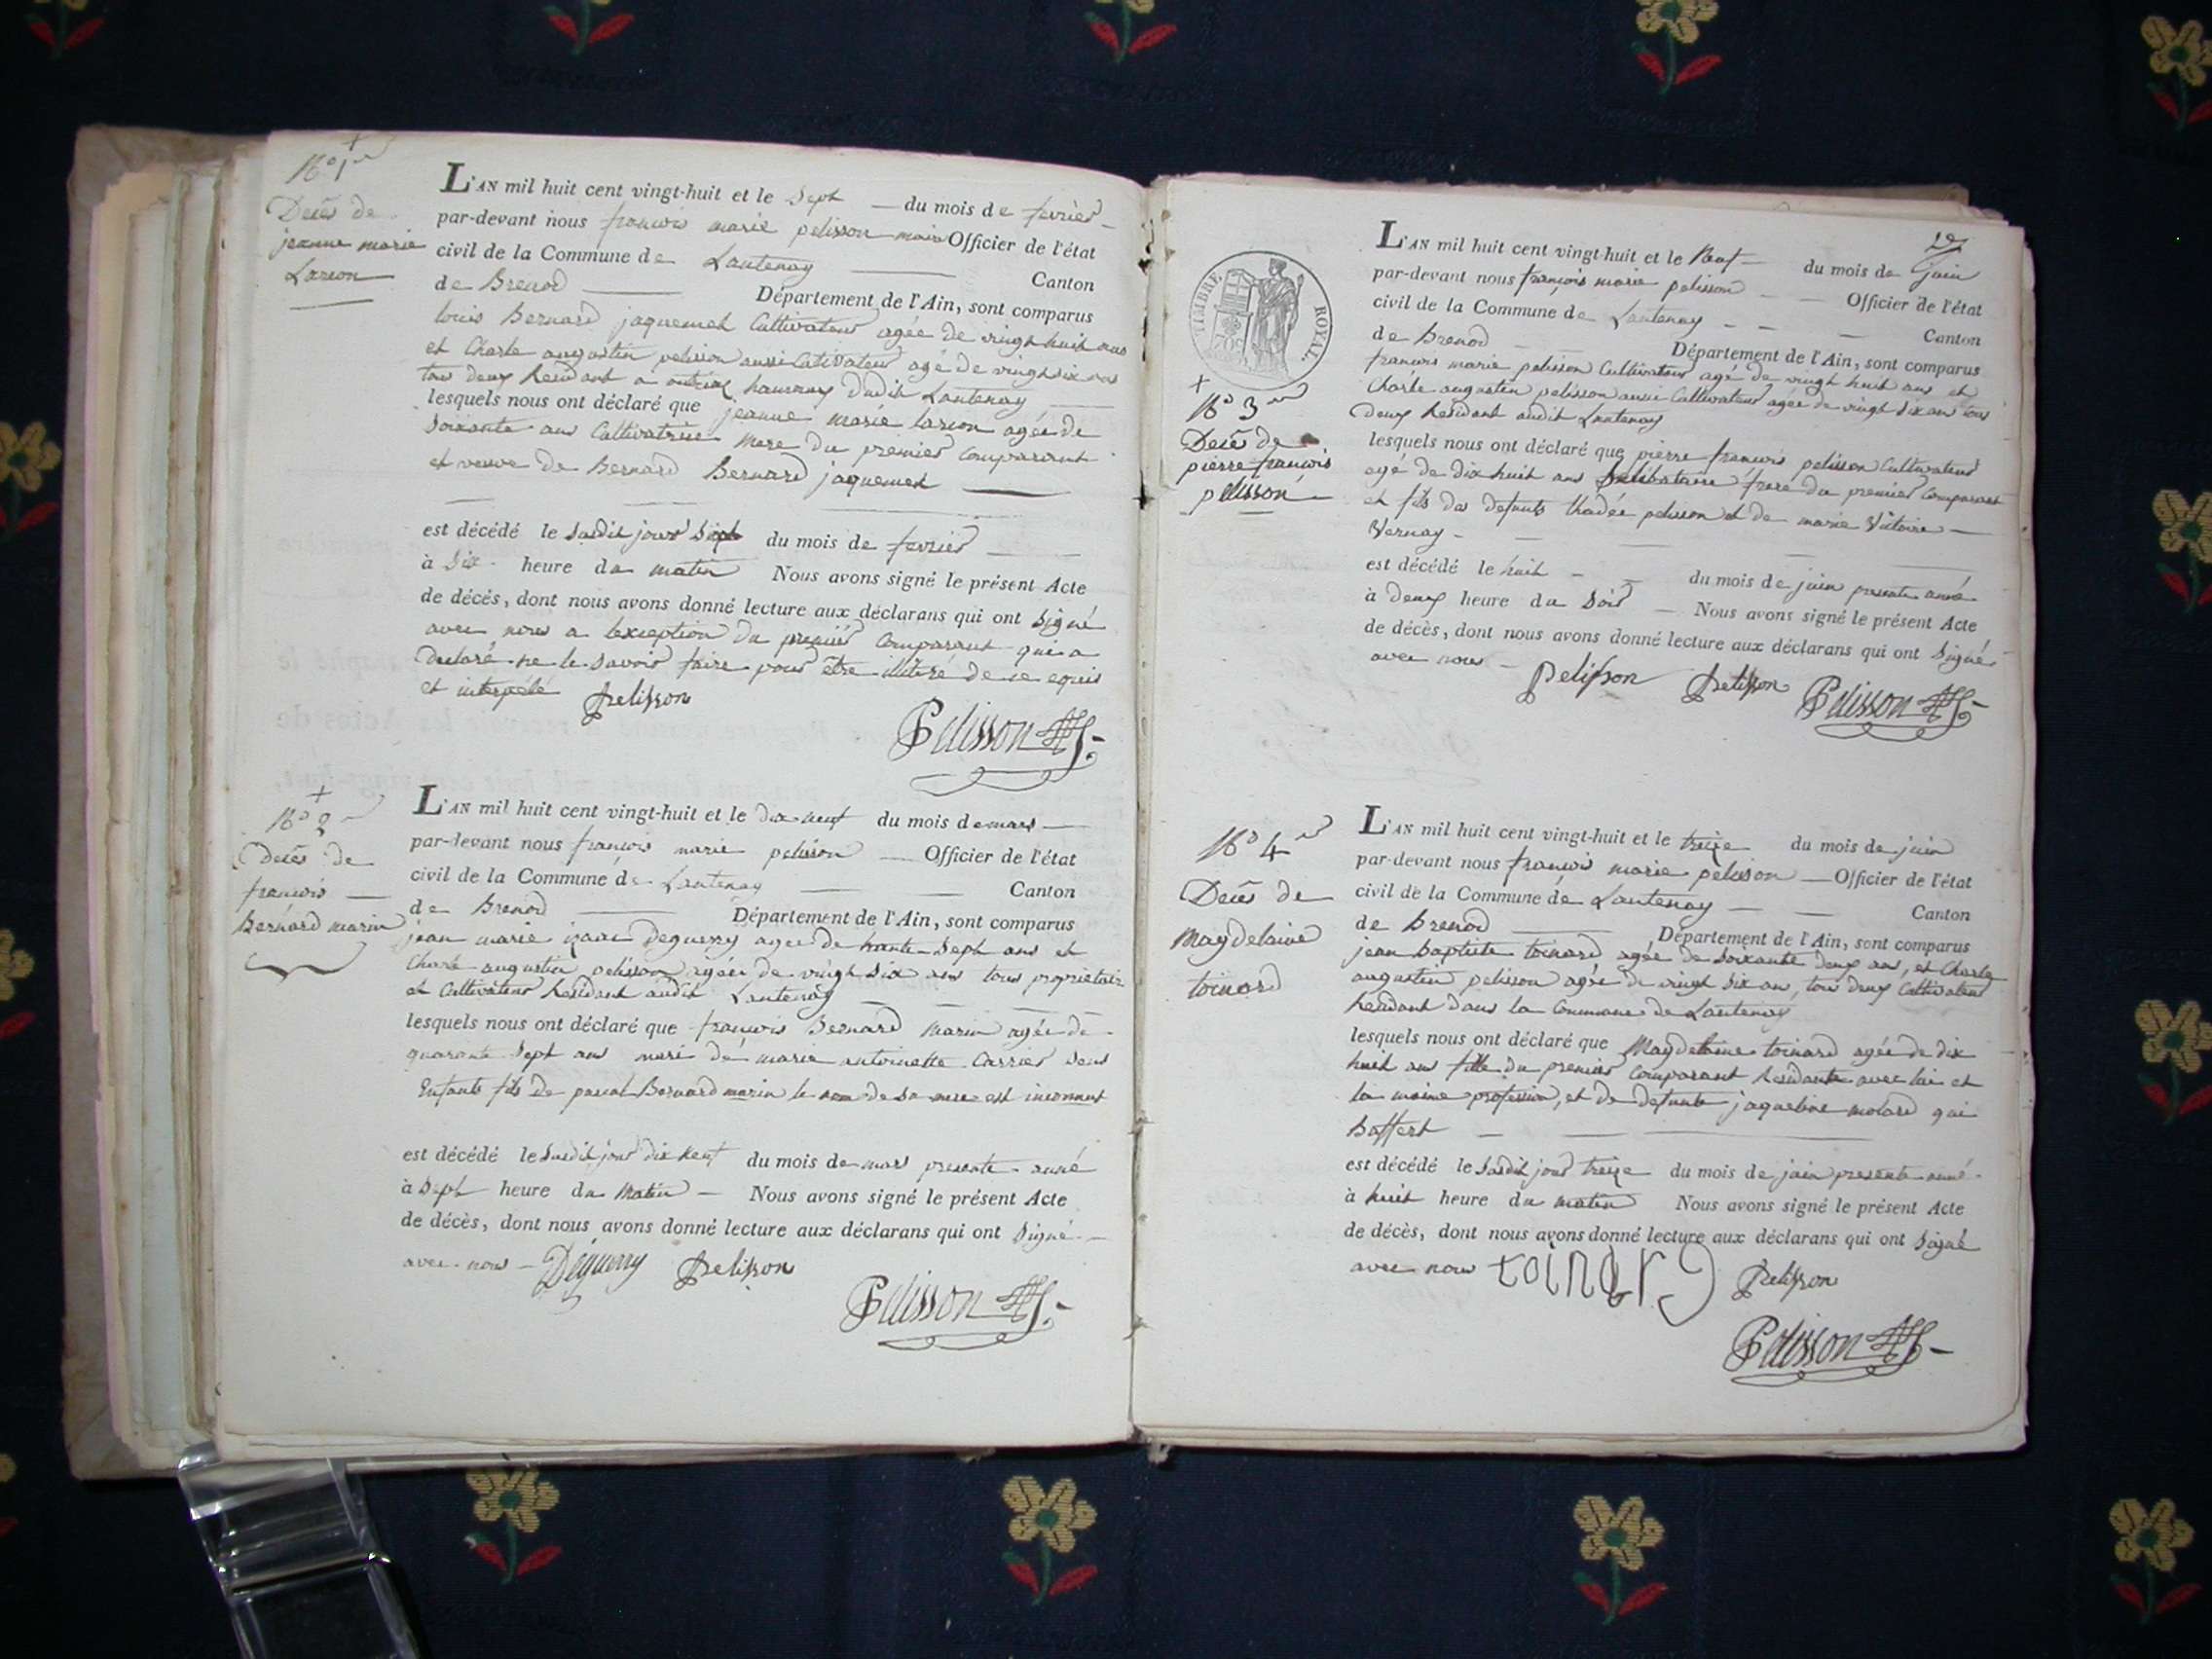 N° 1er
Décès de
jeanne marie
Larion
L'AN mil huit cent vingt-huit et le Sept du mois de fevrier
par-devant nous francois marie pelisson maire Officier de l'état
civil de la Commune de Lantenay Canton
de Brenod Département de l'Ain, sont comparus
louis Bernard jaquemet Cultivateur agée de vingt huit ans
et Charle augustin pelisson aussi Cultivateur agé de vingt six ans
tous deux Residant a hameau dudit Lantenay
lesquels nous ont déclaré que jeanne marie larion agée de
soixante ans Cultivatrice Mere du premier Comparant
et veuve de Bernard Bernard jaquemet
est décédé le susdit jour Sept du mois de fevrier
à Six heure du matin Nous avons signé le présent Acte
de décés, dont nous avons donné lecture aux déclarans qui ont signé
avec nous a lexception du premier Comparant qui a
declaré ne le savoir faire pour être illitéré de ce equis
et interpélé Pelisson
Pelisson
N° 2
Décès de
francois
Bernard marin
L'AN mil huit cent vingt-huit et le dix neuf du mois de mars
par-devant nous francois marie pelisson Officier de l'état
civil de la Commune de Lantenay Canton
de Brenod Département de l'Ain, sont comparus
jean marie izaac Deguerry agee de trante Sept ans et
Charle augustin pelisson agée de vingt six ans tous proprietair
et Cultivateur Residant audit Lantenay
lesquels nous ont déclaré que francois Bernard marin agée de
quarante Sept ans mari de marie antoinette Carrier sens
Enfants fils de pascal Bernard marin le nom de sa mere est inconnut
est décédé le susdit jour dix neuf du mois de mars presente anné
à Sept heure du Matin Nous avons signé le présent Acte
de décès, dont nous avons donné lecture aux déclarans qui ont Signé
avec nous Déguerry Pelisson
Pelisson
TIMBRE ROYAL
N° 3
Décès de
pierre francois
pelisson
L'AN mil huit cent vingt-huit et le Neuf du mois de juin
par-devant nous françois marie pelisson Officier de l'état
civil de la Commune de Lantenay Canton
de Brenod Département de l'Ain, sont comparus
francois marie pelisson Cultivateur agé de vingt huit ans et
Charle augustin pelisson aussi Cultivateur agee de vingt six ans tous
deux Residant audit Lantenay
lesquels nous ont déclaré que pierre francois pelisson Cultivateur
agé de dix huit ans Selibataire frere du premier Comparant
et fils des defunts thadée pelisson et de marie Victoire
Vernay
est décédé le huit du mois de juin presente anné
à deux heure du soir Nous avons signé le présent Acte
de décès, dont nous avons donné lecture aux déclarans qui ont Signé
avec nous Pelisson Pelisson Pelisson
N° 4
Décès de
Magdelaine
toinard
L'AN mil huit cent vingt-huit et le treize du mois de juin
par-devant nous francois marie pelisson Officier de l'état
civil de la Commune de Lantenay Canton
de Brenod Département de l'Ain, sont comparus
jean baptiste toinard agée de soixante deux ans, et Charle
augustin pelisson agée de vingt six ans, tous deux Cultivateur
Residant dans la Commune de Lantenay
lesquels nous ont déclaré que Magdelaine toinard agée de dix
huit ans fille du premier Comparant Residante avec lui et
la même profession, et de defunte jaqueline molard qui
Baffert
est décédé le susdit jour treize du mois de juin presente anné
à huit heure du matin Nous avons signé le présent Acte
de décès, dont nous avons donné lecture aux déclarans qui ont Signé
avec nous toinard Pelisson
Pelisson